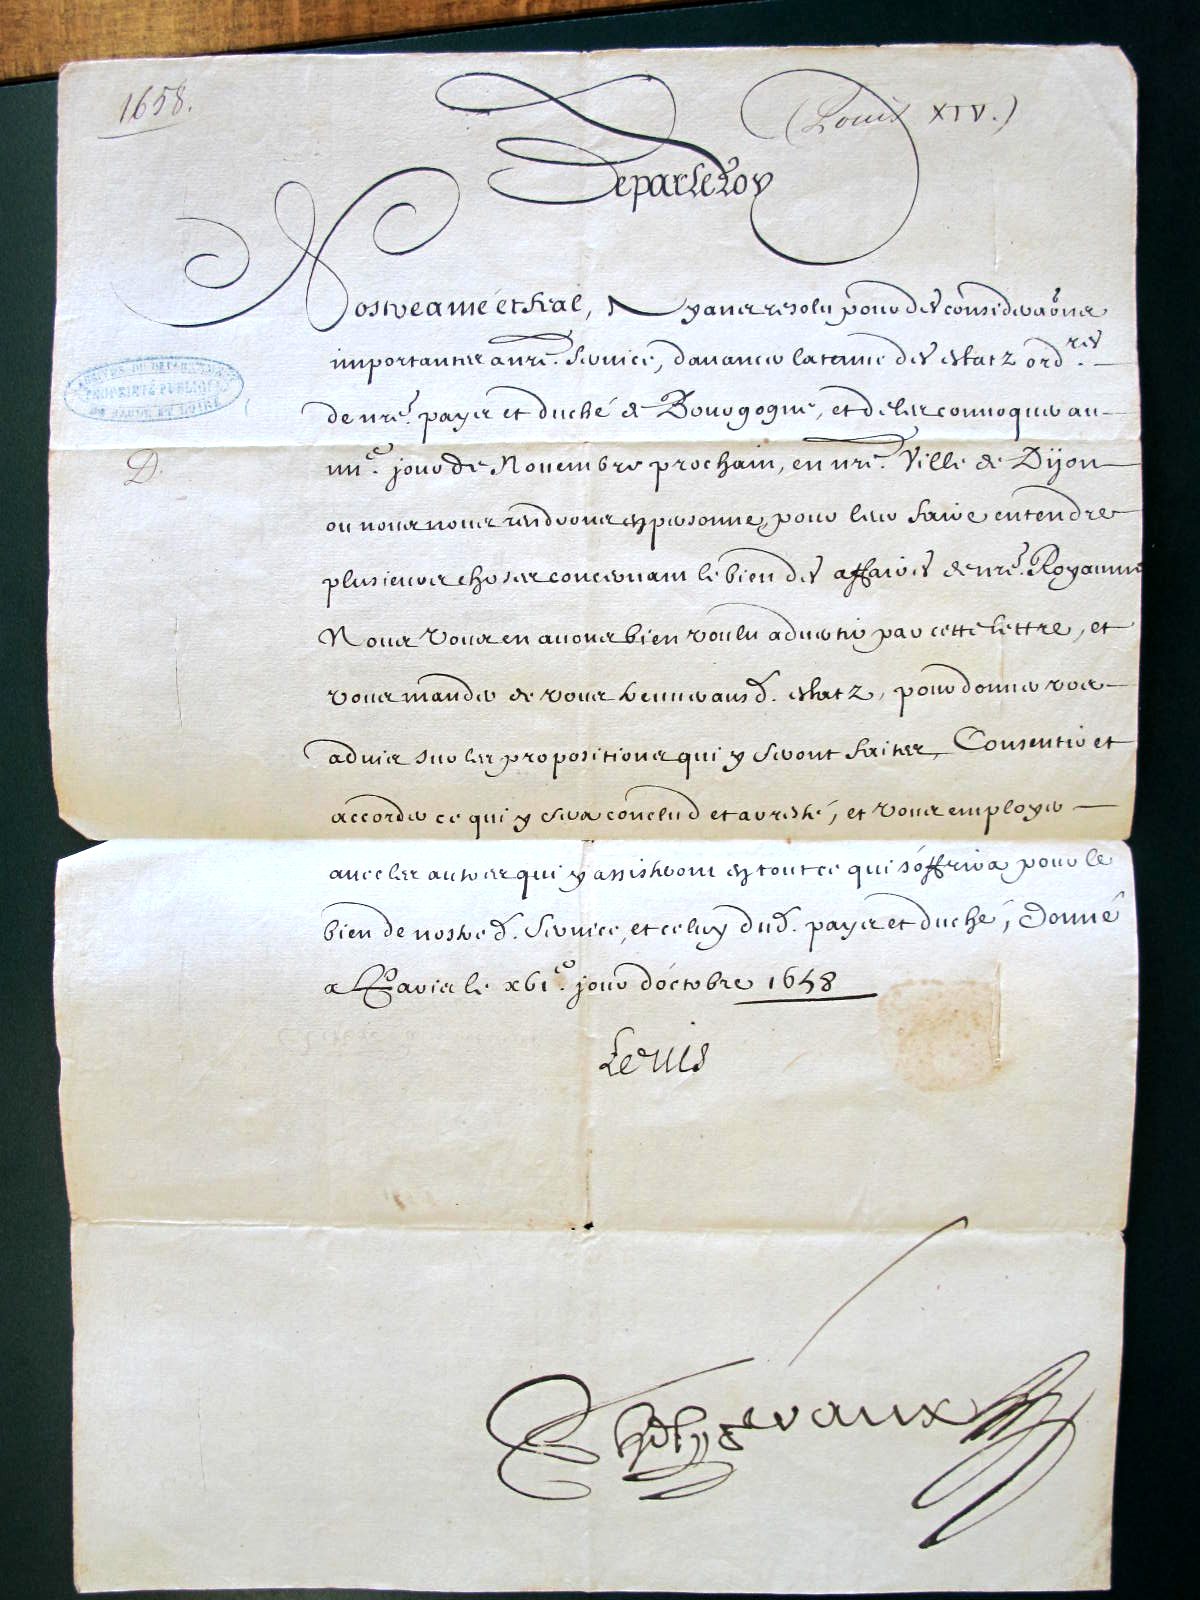 1658.
(Louis XIV.)
De par le Roy
Nostre amé et feal, Ayans resolu pour des consideraõns
importantes a nr̃e. Service, d'avancer la tenue des estatz ord.res
de nr̃e. payes et duché de Bourgogne, et de les convoquer au
iiiie. jour de Novembre prochain, en nr̃e. Ville de Dijon
ou nous nous rendrons en personne, pour leur faire entendre
plusieurs choses concernant le bien des affaires de nr̃e. Royaume
Nous Vous en avons bien voulu advertir par cette lettre, et
vous mander de vous trouver ausd. estatz, pour donner vos
advis sur les propositions qui y seront faites, Consentir et
accorder ce qui y sera conclud et arresté, et vous employer
avec les autres qui y assisteront en tout ce qui s'offrira pour le
bien de nostred. Service, et celuy dud. payes et duché, Donné
a Paris le xvie. jour d'octobre 1658
Louis
ARCHIVES DU DÉPARTEMENT
PROPRIÉTÉ PUBLIQUE
DE SAONE ET LOIRE
D.
Phelypeaux